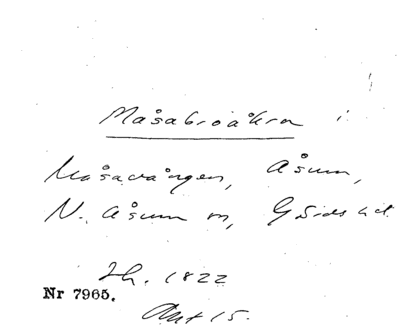 Måsabroåkra i
Måsavången, Åsum,
N. Åsum sn, Gärds hd.
Jh. 1822
Nr 7965.
Akt 15.